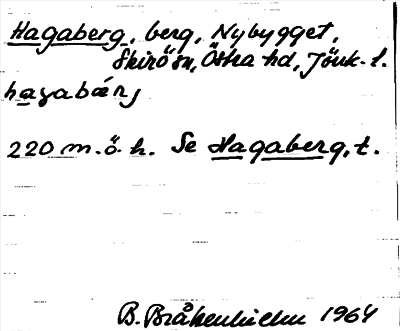 Hagaberg, berg, Nybygget,
Skirö sn, Östra hd, Jönk. l.
hagabärj
220 m.ö.h. Se Hagaberg, t.
B. Bråkenhielm 1964